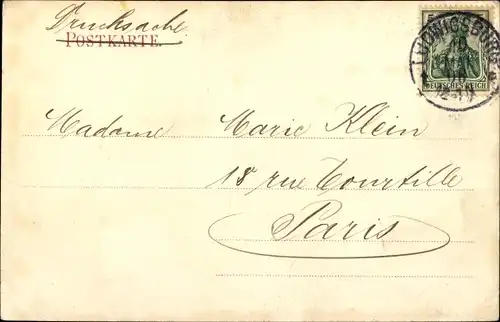 Drucksache
POSTKARTE.
DEUTSCHES REICH
LUDWIGSBURG
Madame Marie Klein
18 rue Tourtille
Paris